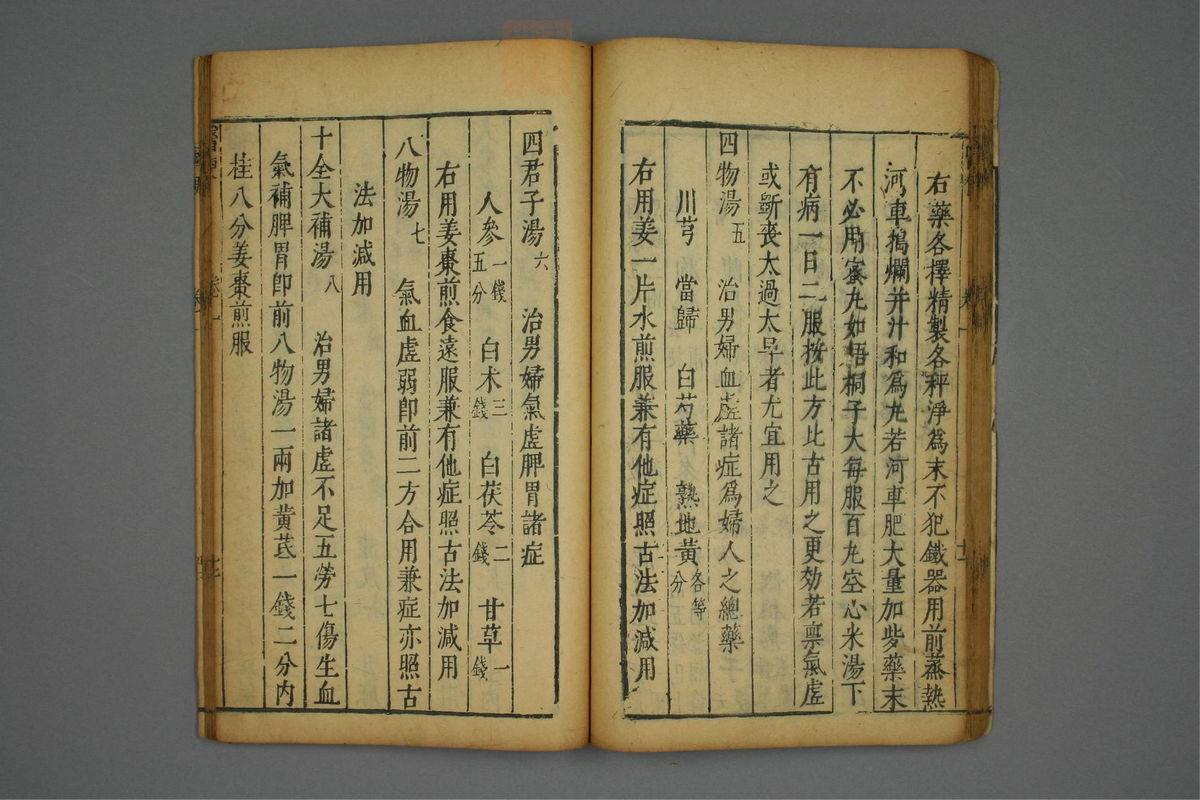 右藥各擇精製各秤淨爲末不犯鐵器用前蒸熟
河車搗爛并汁和爲丸若河車肥大量加些藥末
不必用蜜丸如梧桐子大每服百丸空心米湯下
有病一日二服按此方比古用之更効若禀氣虛
或斷喪太過太早者尤宜用之
四物湯五 治男婦血虛諸症爲婦人之總藥
川芎 當歸 白芍藥 熟地黃各等分
右用姜一片水煎服兼有他症照古法加減用
四君子湯六 治男婦氣虛脾胃諸症
人參一錢五分 白朮三錢 白茯苓二錢 甘草一錢
右用姜棗煎食遠服兼有他症照古法加減用
八物湯七 氣血虛弱卽前二方合用兼症亦照古
法加減用
十全大補湯八 治男婦諸虛不足五勞七傷生血
氣補脾胃卽前八物湯一兩加黃茋一錢二分內
桂八分姜棗煎服